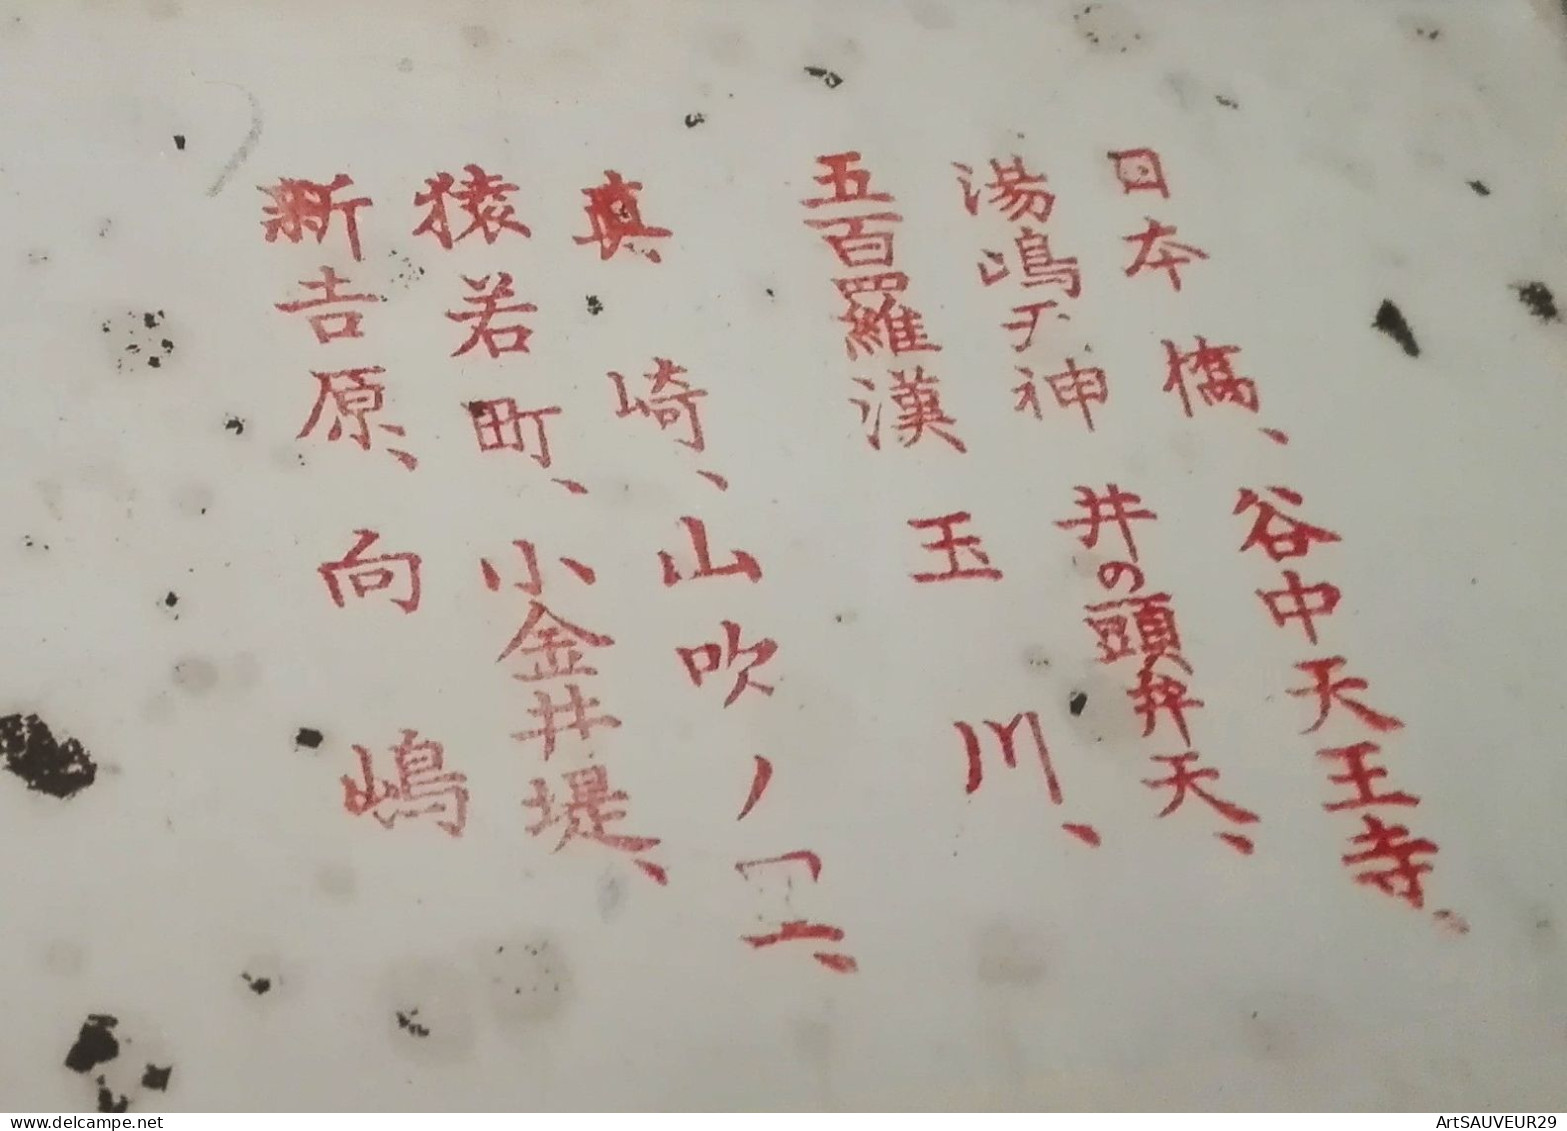 日本橋、谷中天王寺、
湯嶋天神井の頭弁天、
五百羅漢玉川、
真崎、山吹ノ
猿若町、小金井堤、
新吉原、向嶋
delcampe.net
ArtSAUVEUR29